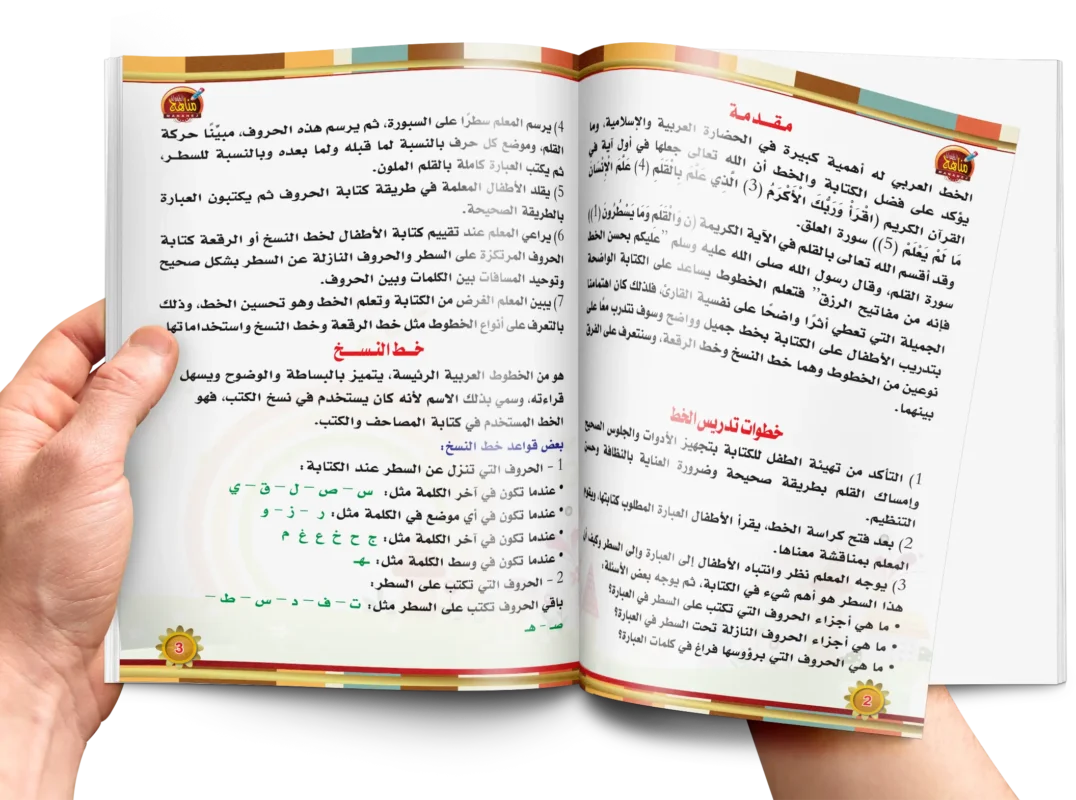 مقـدمـة
الخط العربي له أهمية كبيرة في الحضارة العربية والإسلامية، وما
يؤكد على فضل الكتابة والخط أن الله تعالى جعلها في أول آية في
القرآن الكريم (اقْرَأْ وَرَبُّكَ الْأَكْرَمُ (3) الَّذِي عَلَّمَ بِالْقَلَمِ (4) عَلَّمَ الْإِنْسَانَ
مَا لَمْ يَعْلَمْ (5)) سورة العلق.
وقد أقسم الله تعالى بالقلم في الآية الكريمة (ن وَالْقَلَمِ وَمَا يَسْطُرُونَ (1))
سورة القلم، وقال رسول الله صلى الله عليه وسلم "عليكم بحسن الخط
فإنه من مفاتيح الرزق" فتعلم الخطوط يساعد على الكتابة الواضحة
الجميلة التي تعطي أثرًا واضحًا على نفسية القارئ، فلذلك كان اهتمامنا
بتدريب الأطفال على الكتابة بخط جميل وواضح وسوف نتدرب معًا على
نوعين من الخطوط وهما خط النسخ وخط الرقعة، وسنتعرف على الفرق
بينهما.
خطوات تدريس الخط
1) التأكد من تهيئة الطفل للكتابة بتجهيز الأدوات والجلوس الصحيح
وإمساك القلم بطريقة صحيحة وضرورة العناية بالنظافة وحسن
التنظيم.
2) بعد فتح كراسة الخط، يقرأ الأطفال العبارة المطلوب كتابتها، ويقوم
المعلم بمناقشة معناها.
3) يوجه المعلم نظر وانتباه الأطفال إلى العبارة وإلى السطر وكيف أن
هذا السطر هو أهم شيء في الكتابة، ثم يوجه بعض الأسئلة:
• ما هي أجزاء الحروف التي تكتب على السطر في العبارة؟
• ما هي أجزاء الحروف النازلة تحت السطر في العبارة؟
• ما هي الحروف التي برؤوسها فراغ في كلمات العبارة؟
2
مناهج
4) يرسم المعلم سطرًا على السبورة، ثم يرسم هذه الحروف، مبيِّنًا حركة
القلم، وموضع كل حرف بالنسبة لما قبله ولما بعده وبالنسبة للسطر،
ثم يكتب العبارة كاملة بالقلم الملون.
5) يقلد الأطفال المعلمة في طريقة كتابة الحروف ثم يكتبون العبارة
بالطريقة الصحيحة.
6) يراعي المعلم عند تقييم كتابة الأطفال لخط النسخ أو الرقعة كتابة
الحروف المرتكزة على السطر والحروف النازلة عن السطر بشكل صحيح
وتوحيد المسافات بين الكلمات وبين الحروف.
7) يبين المعلم الغرض من الكتابة وتعلم الخط وهو تحسين الخط، وذلك
بالتعرف على أنواع الخطوط مثل خط الرقعة وخط النسخ واستخداماتها
خـط النـسـخ
هو من الخطوط العربية الرئيسة، يتميز بالبساطة والوضوح ويسهل
قراءته، وسمي بذلك الاسم لأنه كان يستخدم في نسخ الكتب، فهو
الخط المستخدم في كتابة المصاحف والكتب.
بعض قواعد خط النسخ:
1 - الحروف التي تنزل عن السطر عند الكتابة:
• عندما تكون في آخر الكلمة مثل: س – ص – ل – ق – ي
• عندما تكون في أي موضع في الكلمة مثل: ر – ز – و
• عندما تكون في آخر الكلمة مثل: ج ح خ ع غ م
• عندما تكون في وسط الكلمة مثل: ـهـ
2 - الحروف التي تكتب على السطر:
باقي الحروف تكتب على السطر مثل: ت – ف – د – س – ط –
صـ – هـ
3
مناهج